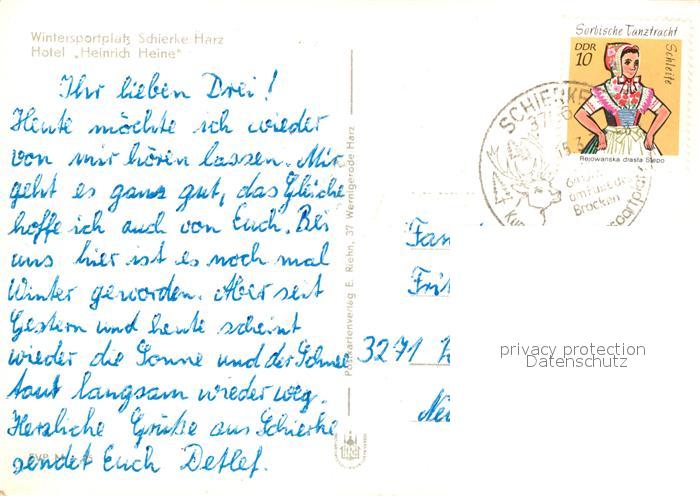 Wintersportplatz Schierke Harz
Hotel „Heinrich Heine"
Ihr lieben Drei!
Heute möchte ich wieder
von mir hören lassen. Mir
geht es ganz gut, das Gleiche
hoffe ich auch von Euch. Bei
uns hier ist es noch mal
Winter geworden. Aber seit
Gestern und heute scheint
wieder die Sonne und der Schnee
taut langsam wieder weg.
Herzliche Grüße aus Schierke
sendet Euch Detlef.
Postkartenverlag E. Riehn, 37 Wernigerode Harz
Sorbische Tanztracht
Schleife
DDR
10
Rejowanska drasta Slepo
SCHIERKE
am Fuße des
Brocken
Fam
3271
privacy protection
Datenschutz